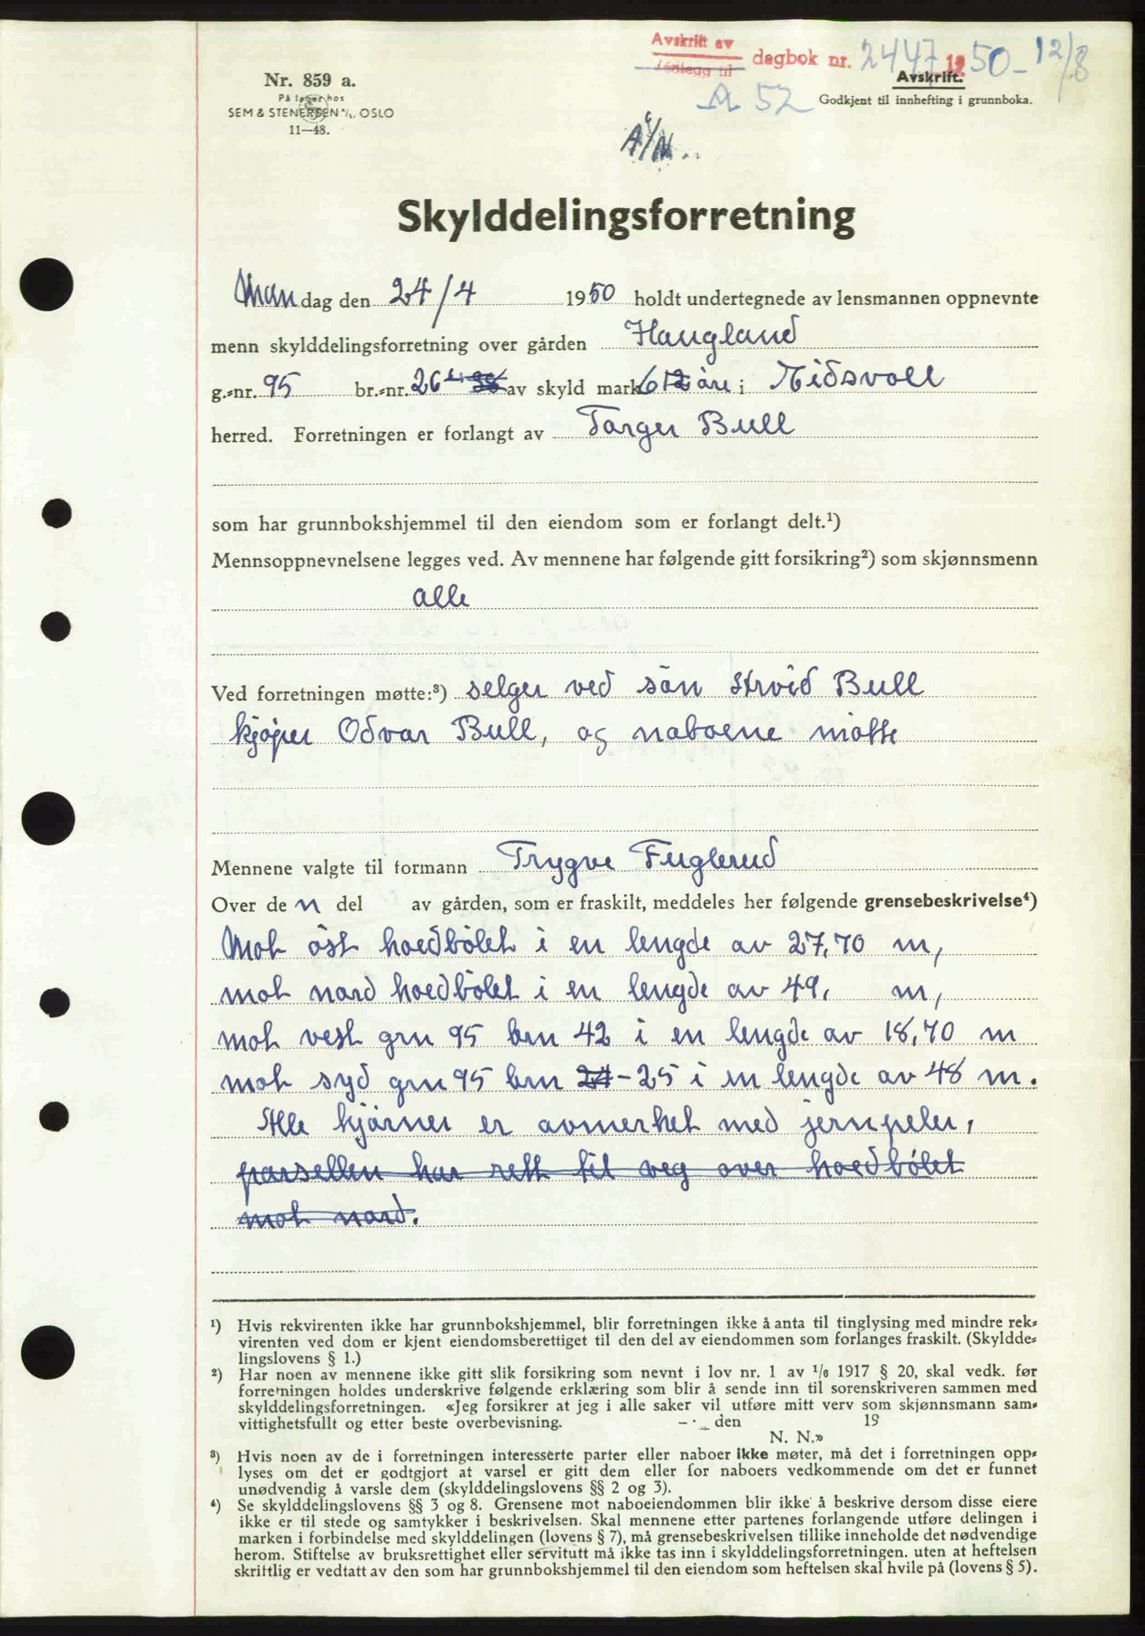 Avskrift av
Vedlegg til
dagbok nr. 2447 1950 - 12/8
A 52
Avskrift.
Godkjent til innhefting i grunnboka.
Nr. 859 a.
På lager hos
SEM & STENERSEN A/S. OSLO
11—48.
Skylddelingsforretning
Mandag den 24/4 1950 holdt undertegnede av lensmannen oppnevnte
menn skylddelingsforretning over gården Haugland
g.-nr. 95 br.-nr. 26 av skyld mark 6 øre i Eidsvoll
herred. Forretningen er forlangt av Targer Bull
som har grunnbokshjemmel til den eiendom som er forlangt delt.¹)
Mennsoppnevnelsene legges ved. Av mennene har følgende gitt forsikring²) som skjønnsmenn
alle
Ved forretningen møtte:³) selger ved sön Arvid Bull
kjøper Odvar Bull, og naboene møtte
Mennene valgte til formann Trygve Fuglerud
Over den del av gården, som er fraskilt, meddeles her følgende grensebeskrivelse⁴)
Mot öst hoedbölet i en lengde av 27,70 m,
mot nord hoedbölet i en lengde av 49, m,
mot vest grn 95 brn 42 i en lengde av 18,70 m
mot syd grn 95 brn 24 - 25 i en lengde av 48 m.
Alle hjörner er avmerket med jernpeler,
parsellen har rett til veg over hoedbölet
mot nord.
¹) Hvis rekvirenten ikke har grunnbokshjemmel, blir forretningen ikke å anta til tinglysing med mindre rek-
virenten ved dom er kjent eiendomsberettiget til den del av eiendommen som forlanges fraskilt. (Skyldde-
lingslovens § 1.)
²) Har noen av mennene ikke gitt slik forsikring som nevnt i lov nr. 1 av 1/6 1917 § 20, skal vedk. før
forretningen holdes underskrive følgende erklæring som blir å sende inn til sorenskriveren sammen med
skylddelingsforretningen. «Jeg forsikrer at jeg i alle saker vil utføre mitt verv som skjønnsmann sam-
vittighetsfullt og etter beste overbevisning. den 19
N. N.»
³) Hvis noen av de i forretningen interesserte parter eller naboer ikke møter, må det i forretningen opp-
lyses om det er godtgjort at varsel er gitt dem eller for naboers vedkommende om det er funnet
unødvendig å varsle dem (skylddelingslovens §§ 2 og 3).
⁴) Se skylddelingslovens §§ 3 og 8. Grensene mot naboeiendommen blir ikke å beskrive dersom disse eiere
ikke er til stede og samtykker i beskrivelsen. Skal mennene etter partenes forlangende utføre delingen i
marken i forbindelse med skylddelingen (lovens § 7), må grensebeskrivelsen tillike inneholde det nødvendige
herom. Stiftelse av bruksrettighet eller servitutt må ikke tas inn i skylddelingsforretningen. uten at heftelsen
skriftlig er vedtatt av den som har grunnbokshjemmel til den eiendom som heftelsen skal hvile på (lovens § 5).